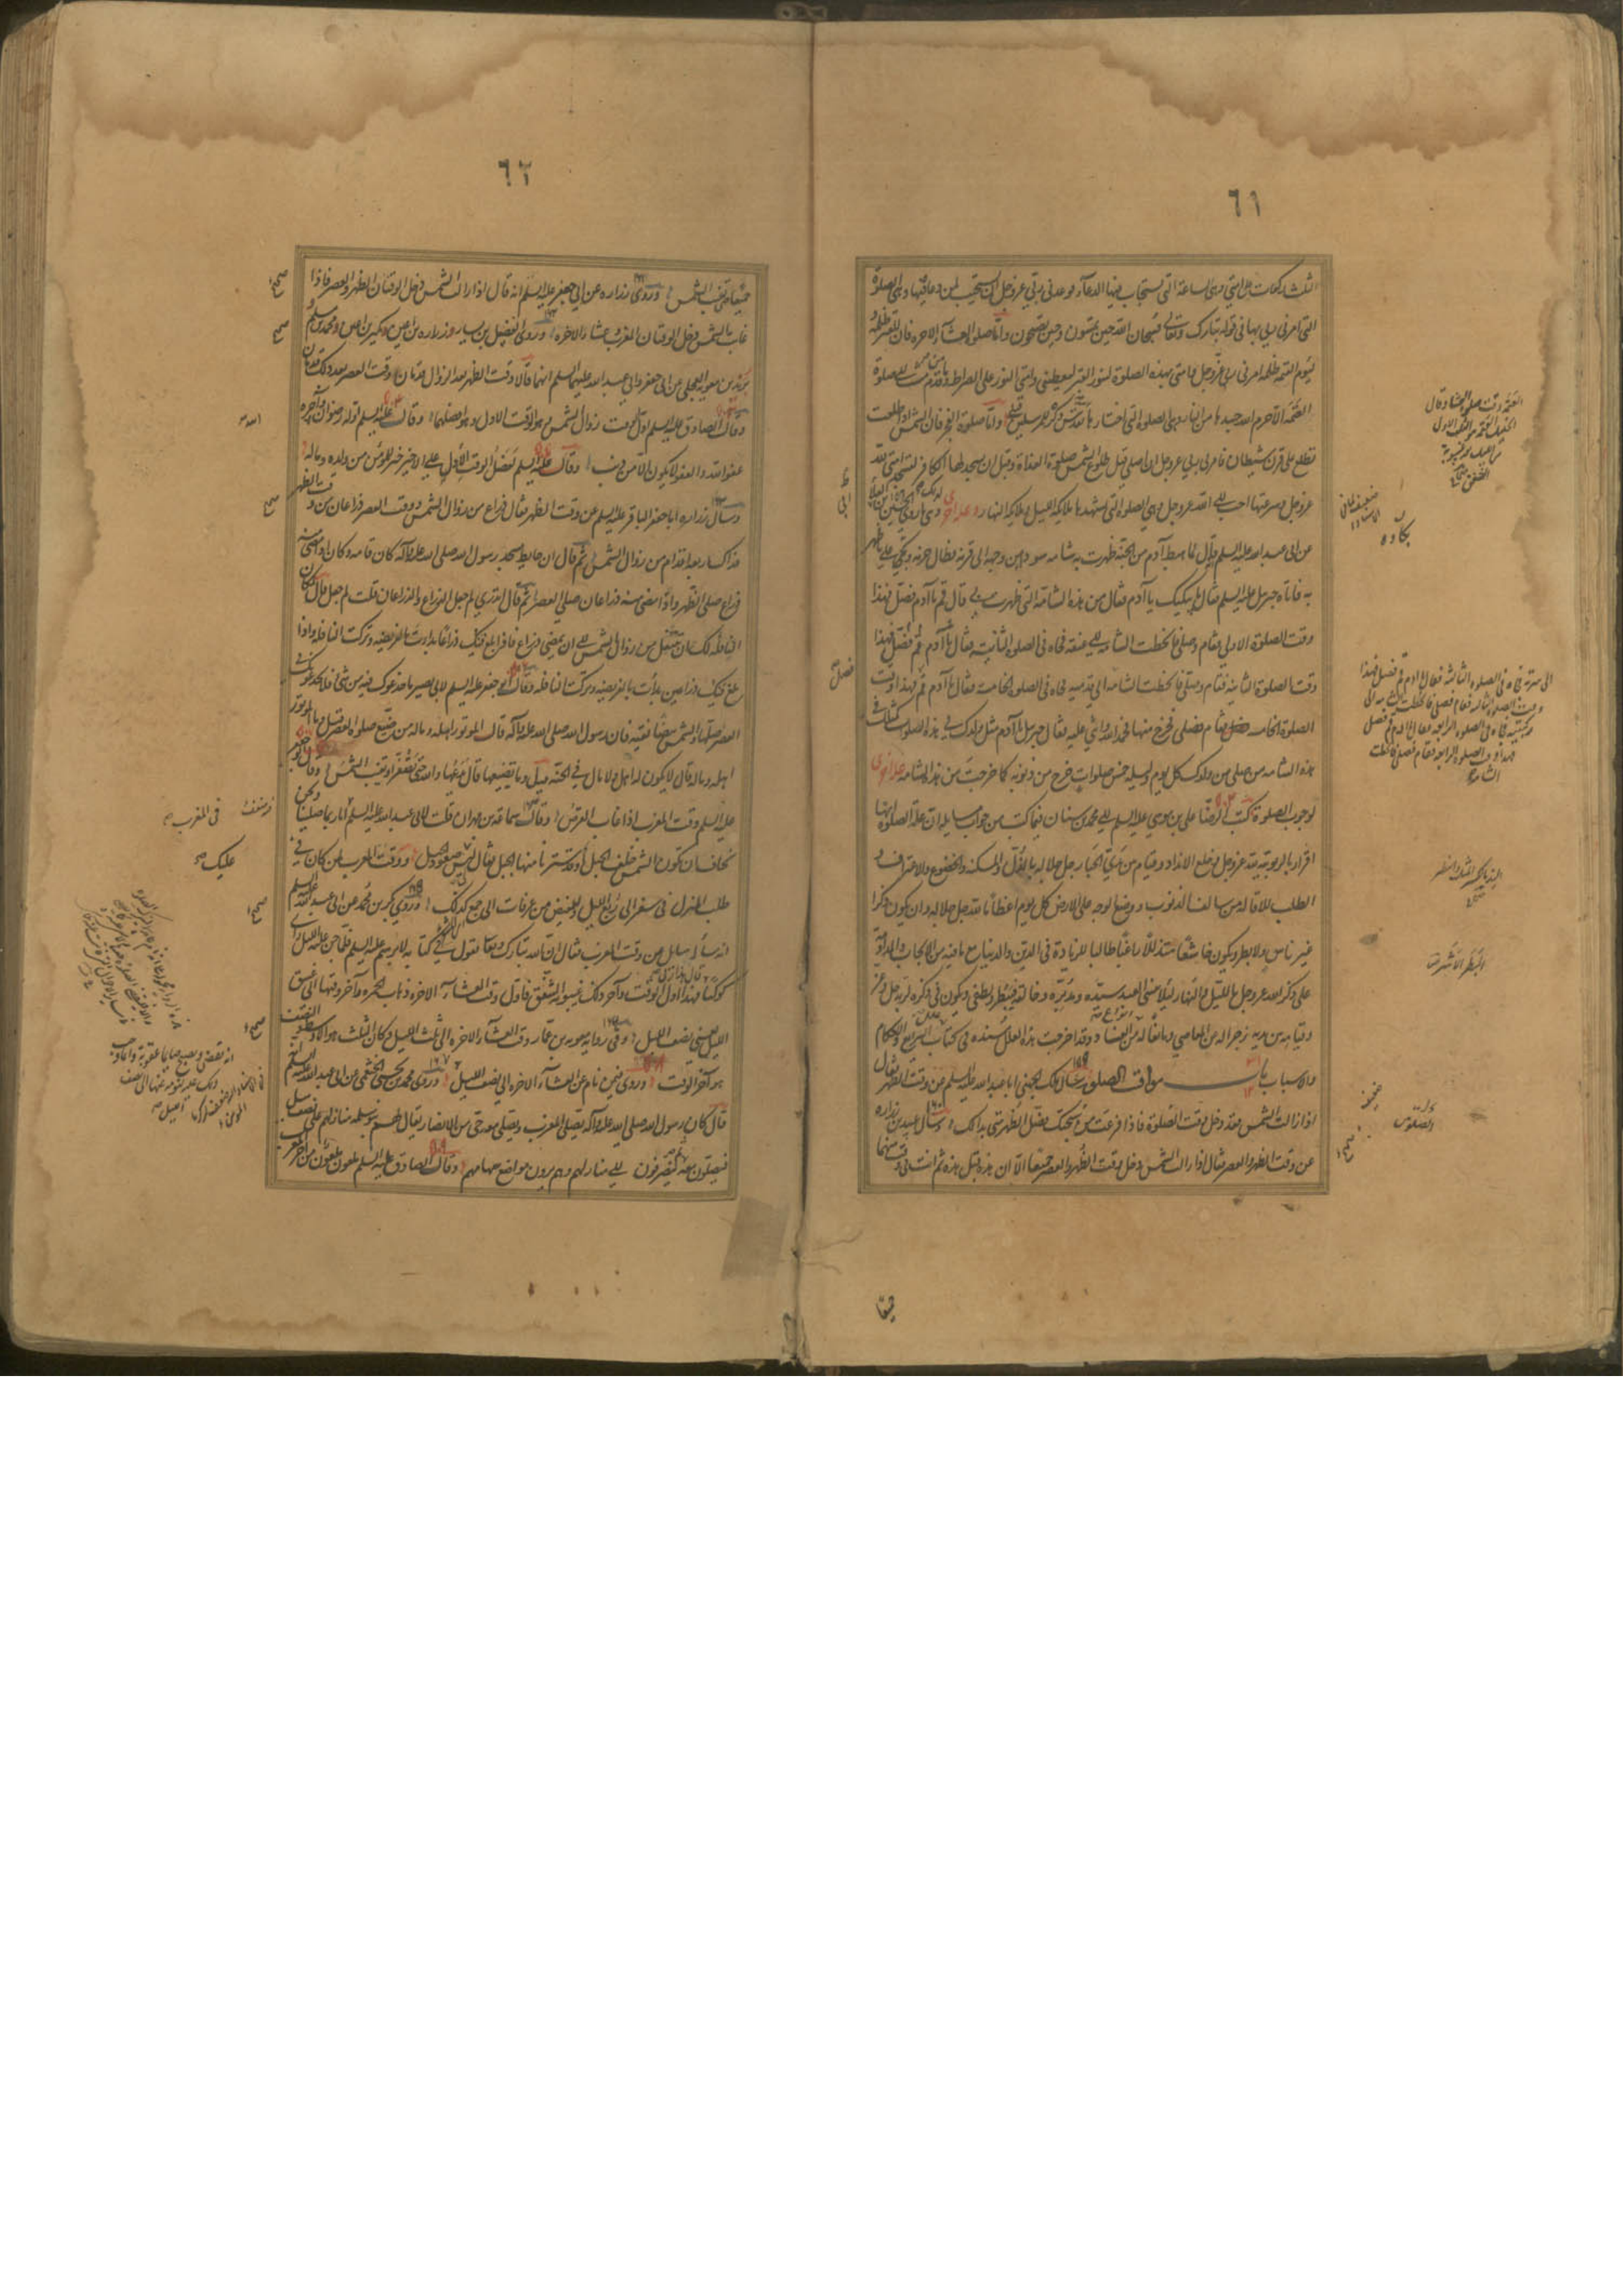 ٦١
الثلث ركعات على امتي وهي الساعة التي يستجاب فيها الدعاء فوعدني ربي عز وجل ان يستجيب لمن دعاه فيها وهي الصلوة
التي امرني ربي بها في قوله تبارك وتعالى فسبحان الله حين تمسون وحين تصبحون واما صلوة العشاء الاخرة فان للقبر ظلمة و
ليوم القيمة ظلمة امرني ربي عز وجل وامتي بهذه الصلوة لتنور القبر وليعطيني وامتي النور على الصراط وما من قدم مشت الى صلوة
العتمة الا حرم الله جسدها من النار وهي الصلوة التي اختارها الله تقدس ذكره للمرسلين قبلي واما صلوة الفجر فان الشمس اذا طلعت
تطلع على قرن شيطان فامرني ربي عز وجل ان اصلي قبل طلوع الشمس صلوة الغداة وقبل ان يسجد لها الكافر لتسجد امتي لله
عز وجل وسرعتها احب الى الله عز وجل وهي الصلوة التي تشهدها ملائكة الليل وملائكة النهار وعلة اخرى لذلك وهي ما روي الحسين بن ابي العلا
عن ابي عبد الله عليه السلم قال لما هبط آدم من الجنة ظهرت به شامة سوداء من وجهه الى قرنه فطال حزنه وبكى على ما ظهر
به فاتاه جبرئيل عليه السلم فقال ما يبكيك يا آدم فقال من هذه الشامة التي ظهرت بي قال قم يا آدم فصل فهذا
وقت الصلوة الاولى فقام وصلى فانحطت الشامة الى عنقه فجاءه في الصلوة الثانية فقال يا آدم قم فصل فهذا
وقت الصلوة الثانية فقام وصلى فانحطت الشامة الى قدميه فجاءه في الصلوة الخامسة فقال يا آدم قم فهذا وقت
الصلوة الخامسة فقام فصلى فخرج منها فحمد الله واثنى عليه فقال جبرئيل يا آدم مثل ولدك في هذه الصلوات كمثلك في
هذه الشامة من صلى من ولدك كل يوم وليلة خمس صلوات خرج من ذنوبه كما خرجت من هذه الشامة علة اخرى
لوجوب الصلوة كتب الرضا علي بن موسى عليه السلم الى محمد بن سنان فيما كتب من جواب مسايله ان علة الصلوة انها
اقرار بالربوبية لله عز وجل وخلع الانداد وقيام من يدي الجبار جل جلاله بالذل والمسكنة والخضوع والاعتراف و
الطلب للاقالة من سالف الذنوب ووضع الوجه على الارض كل يوم اعظاما لله جل جلاله وان يكون ذاكرا
غير ناس ولا بطر ويكون خاشعا متذللا راغبا طالبا للزيادة في الدين والدنيا مع ما فيه من الايجاب والمداومة
على ذكر الله عز وجل بالليل والنهار لئلا ينسى العبد سيده ومدبره وخالقه فيبطر ويطغى ويكون في ذكره لربه جل وعز
وقيامه بين يديه زجرا له من المعاصي ومانعا له من انواع الفساد وقد اخرجت هذه العلل مسندة في كتاب علل الشرايع والاحكام
والاسباب باب مواقيت الصلوة سال مالك الجهني ابا عبد الله عليه السلم عن وقت الظهر فقال
اذا زالت الشمس فقد دخل وقت الصلوة فاذا فرغت من سبحتك فصل الظهر متى بدا لك وسال عبيد بن زرارة
عن وقت الظهر والعصر فقال اذا زالت الشمس دخل وقت الظهر والعصر جميعا الا ان هذه قبل هذه ثم انت في وقت منهما
العتمة وقت صلوة العشاء وقال
الخليل العتمة من الثلث الاول
من الليل بعد غيبوبة
الشفق
بكاؤه
الى سرته فجاءه في الصلوة الثالثة فقال يا ادم قم فصل فهذا
وقت الصلوة الثالثة فقام فصلى فانحطت الشامة الى
ركبتيه فجاءه في الصلوة الرابعة فقال يا ادم قم فصل
فهذا وقت الصلوة الرابعة فقام فصلى فانحطت
الشامة
الند بالكسر المثل والنظير
البطر الاشر
الصلوتين
فصل
جميعا
٦٢
جميعا حتى تغيب الشمس وروى زرارة عن ابي جعفر عليه السلم انه قال اذا زالت الشمس دخل الوقتان الظهر والعصر فاذا
غابت الشمس دخل الوقتان المغرب وعشاء الاخرة وروى الفضيل بن يسار وزرارة بن اعين وبكير بن اعين ومحمد بن مسلم و
بريد بن معوية العجلي عن ابي جعفر وابي عبد الله عليهما السلم انهما قالا وقت الظهر بعد الزوال قدمان ووقت العصر بعد ذلك قدمان
وقال الصادق عليه السلم اول الوقت زوال الشمس وهو وقت الله الاول وهو افضلهما وقال عليه السلم اوله رضوان الله وآخره
عفو الله والعفو لا يكون الا من ذنب وقال عليه السلم لفضل الوقت الاول على الاخير خير للمؤمن من ولده وماله
وسال زرارة ابا جعفر الباقر عليه السلم عن وقت الظهر فقال ذراع من زوال الشمس ووقت العصر ذراعان من وقت الظهر
فذاك اربعة اقدام من زوال الشمس ثم قال ان حايط مسجد رسول الله صلى الله عليه وآله كان قامة وكان اذا مضى منه
ذراع صلى الظهر واذا مضى منه ذراعان صلى العصر ثم قال اتدري لم جعل الذراع والذراعان قلت لم جعل ذلك قال لمكان
النافلة لك ان تتنفل من زوال الشمس الى ان يمضي ذراع فاذا بلغ فيئك ذراعا بدات بالفريضة وتركت النافلة واذا
بلغ فيئك ذراعين بدات بالفريضة وتركت النافلة وقال ابو جعفر عليه السلم لابي بصير ما خدعوك فيه من شيء فلا يخدعوك في
العصر صلها والشمس بيضاء نقية فان رسول الله صلى الله عليه وآله قال الموتور اهله وماله من ضيع صلوة العصر قيل وما الموتور
اهله وماله قال لا يكون له اهل ولا مال في الجنة قيل وما تضييعها قال يدعها والله حتى تصفر او تغيب الشمس وقال ابو جعفر
عليه السلم وقت المغرب اذا غاب القرص وقال سماعة بن مهران قلت لابي عبد الله عليه السلم انا ربما صلينا ونحن
نخاف ان تكون الشمس خلف الجبل او قد سترنا منها الجبل فقال ليس صعود الجبل ووقت المغرب لمن كان في
طلب المنزل في سفر الى ربع الليل والمفيض من عرفات الى جمع كذلك وروى بكر بن محمد عن ابي عبد الله عليه السلم
انه ساله سايل عن وقت المغرب فقال ان الله تبارك وتعالى يقول في كتابه لابرهيم عليه السلم فلما جن عليه الليل راى
كوكبا قال هذا ربي فهذا اول الوقت وآخر ذلك غيبوبة الشفق فاول وقت العشاء الاخرة ذهاب الحمرة وآخر وقتها الى غسق
الليل يعني نصف الليل وفي رواية معوية بن عمار وقت العشاء الاخرة الى ثلث الليل وكان الثلث هو الاوسط والنصف
هو آخر الوقت وروى فيمن نام عن العشاء الاخرة الى نصف الليل وروى محمد بن يحيى الخثعمي عن ابي عبد الله عليه السلم
قال كان رسول الله صلى الله عليه وآله يصلي المغرب ويصلي معه حي من الانصار يقال لهم بنو سلمة منازلهم على نصف ميل
فيصلون معه ثم ينصرفون الى منازلهم وهم يرون مواضع سهامهم وقال الصادق عليه السلم ملعون ملعون من اخر المغرب
في المغرب
عليك
انه يقضي ويصبح صايما عقوبة وانما وجب
ذلك عليه لنومه عنها الى نصف
الليل